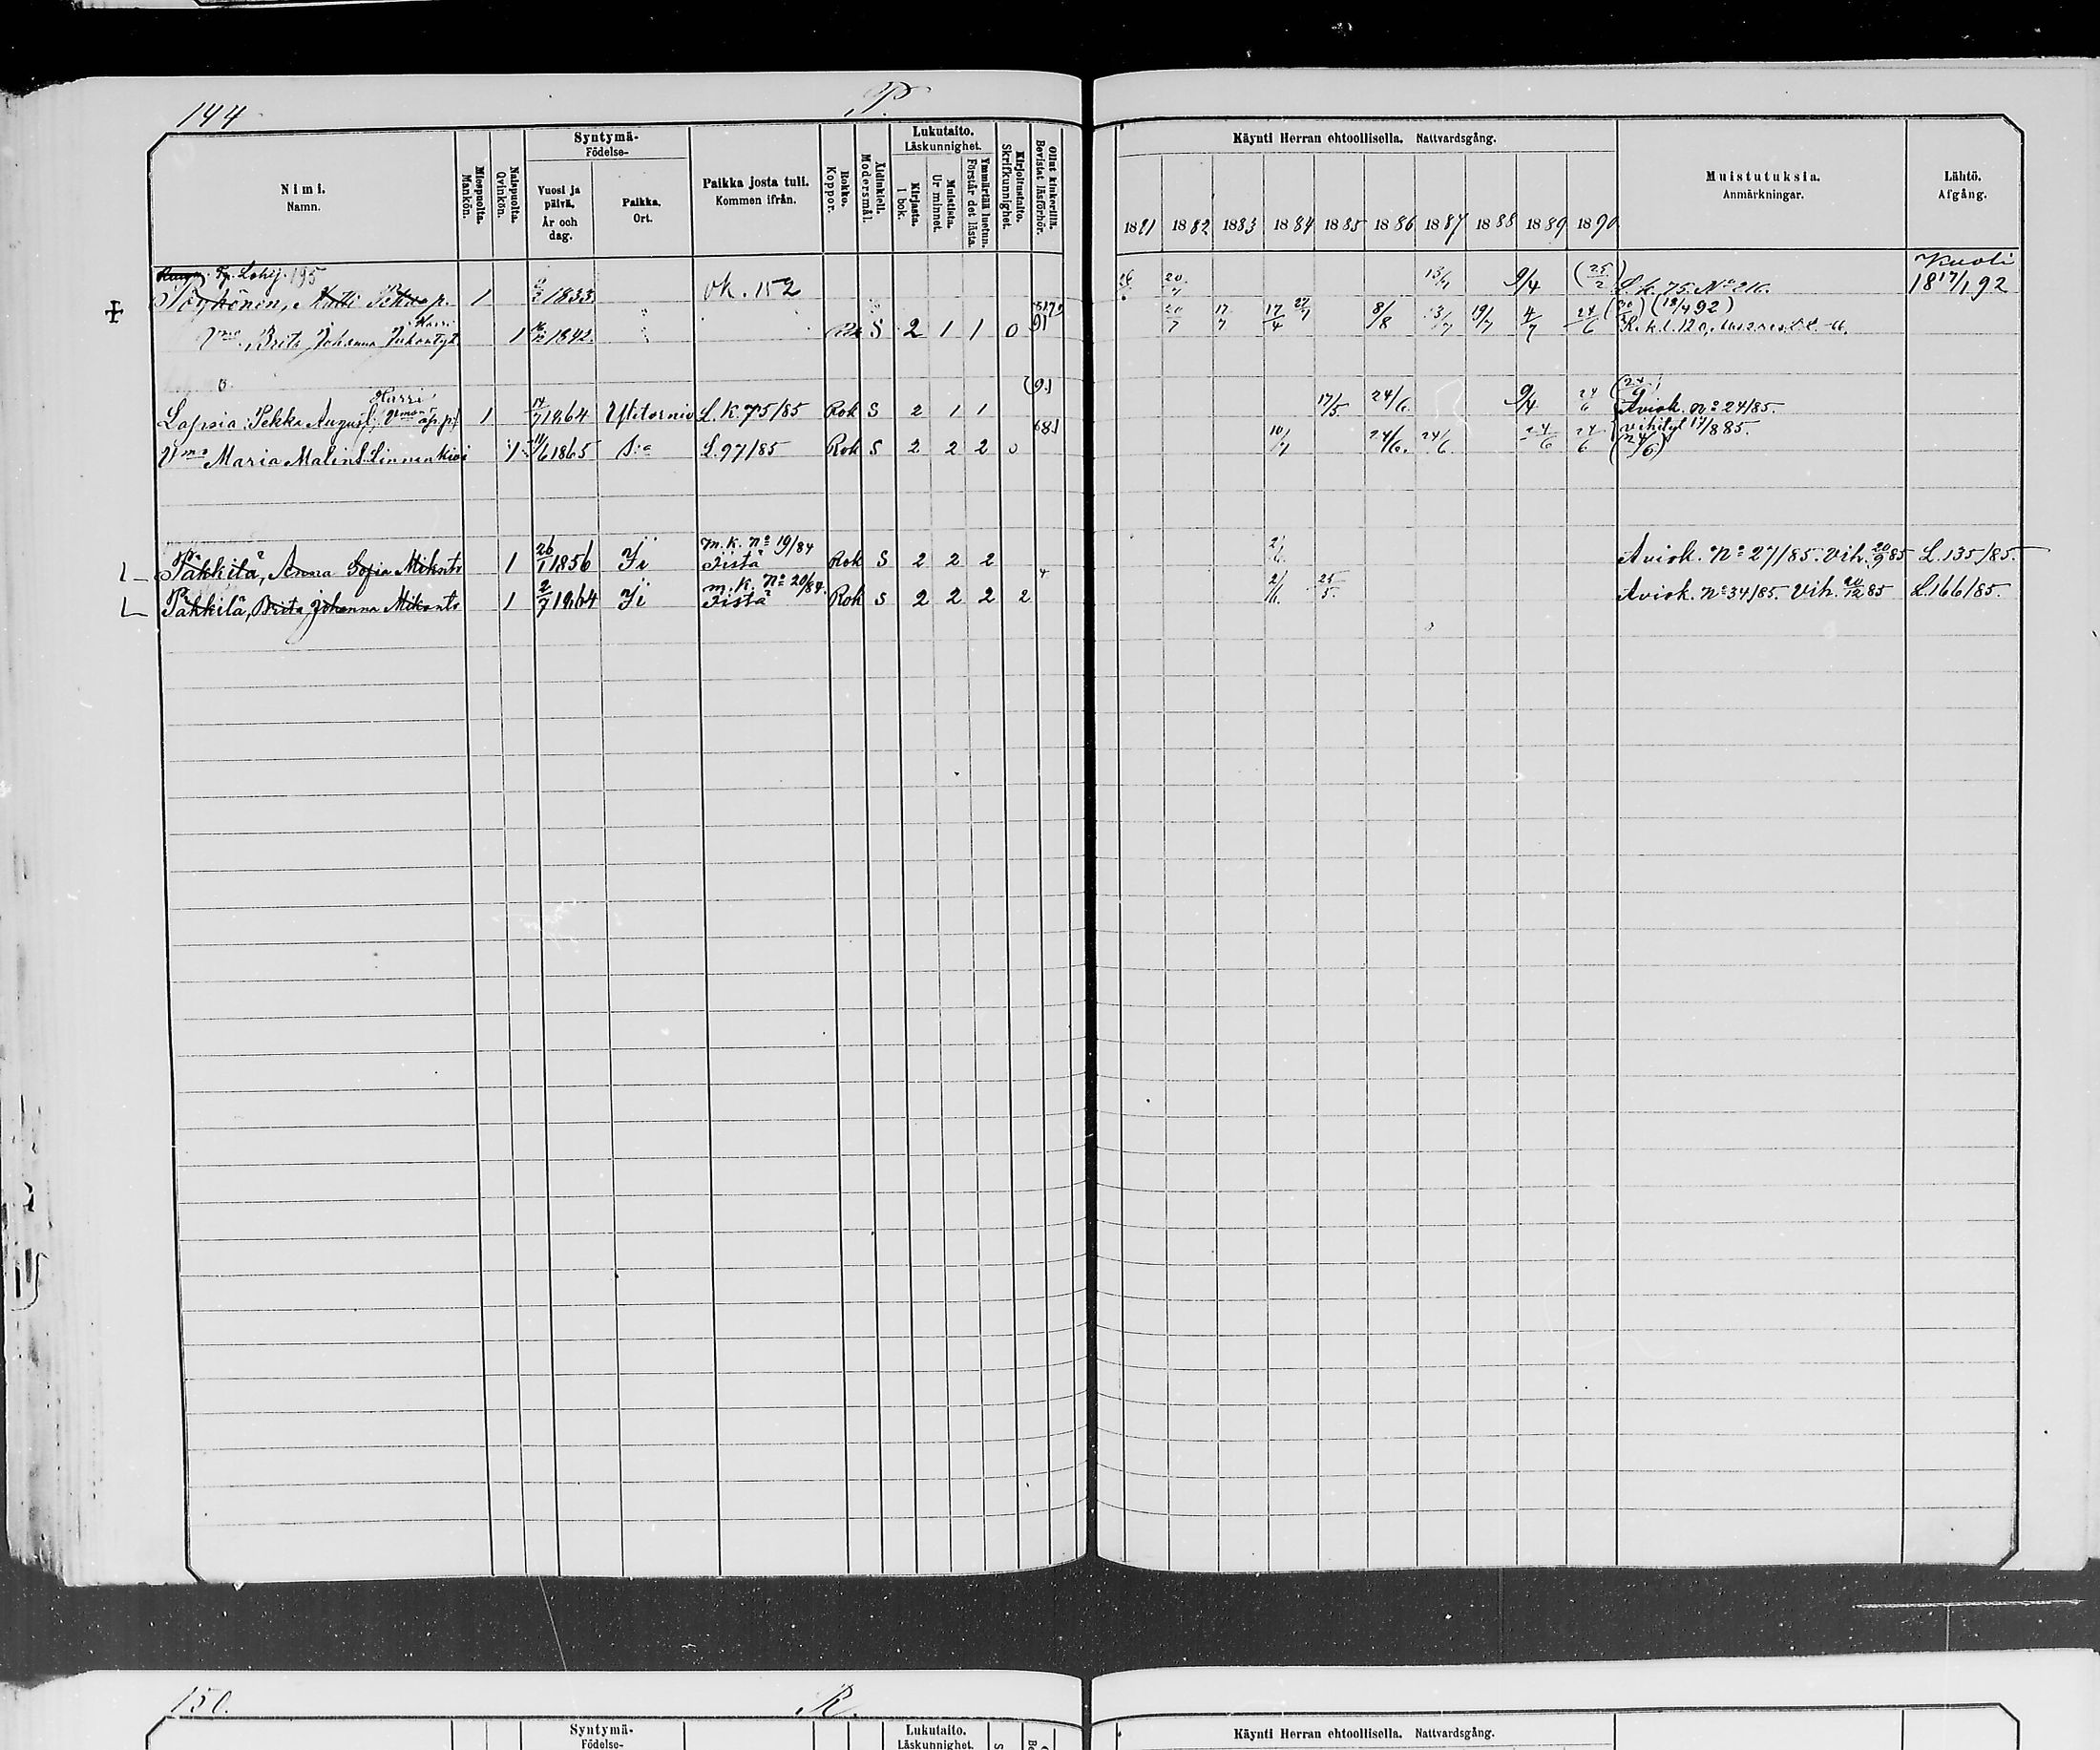 144
P.
Nimi.
Namn.
Miespuolta.
Mankön.
Naispuolta.
Qvinkön.
Syntymä-
Födelse-
Vuosi ja päivä.
År och dag.
Paikka.
Ort.
Paikka josta tuli.
Kommen ifrån.
Rokko.
Koppor.
Äidinkieli.
Modersmål.
Lukutaito.
Läskunnighet.
Kirjasta.
I bok.
Muistista.
Ur minnet.
Ymmärtää luetun.
Förstår det lästa.
Kirjoitustaito.
Skrifkunnighet.
Ollut kinkerillä.
Bevistat läsförhör.
Käynti Herran ehtoollisella. Nattvardsgång.
1881 1882 1883 1884 1885 1886 1887 1888 1889 1890
Muistutuksia.
Anmärkningar.
Lähtö.
Afgång.
195
Kuoli
Matti Pekka p. 1 1833 ok. 152 20/7 13/7 9/4 (25/2) L. k. 75. No 216. 18 17/1 92
Harri
Vmo, Brita Johanna 1 1842 Rok S 2 1 1 0 91 20/7 17/7 17/4 27/7 8/8 13/7 19/7 4/7 24/6 (18/4 92)
Harri
Lapsia: Pekka August, 1 14/7 1864 Ylitornio L. K. 75/85 Rok S 2 1 1 17/5 24/6 9/4 24/6 Aviok. No 24/85.
Vmo Maria Malin Linnankivi 1 11/6 1865 S:a L. 97/85 Rok S 2 2 2 0 10/7 24/6. 24/6 24/6 24/6 vihityt 17/8 85.
(24/6)
m. k. No 19/84
L Pahkila, Anna Sofia Mikontr 1 26/1 1856 Ii Iistä Rok S 2 2 2 2/6. Aviok. No 27/85. Vih. 20/9 85 L. 135/85.
m. k. No 20/84.
L Pahkilä, Brita Johanna Mikontr 1 2/7 1864 Ii Iistä Rok S 2 2 2 2 2/6. 25/5. Aviok. No 34/85. Vih. 20/12 85 L. 166/85.
150.
R.
Syntymä-
Födelse-
Lukutaito.
Läskunnighet.
Käynti Herran ehtoollisella. Nattvardsgång.